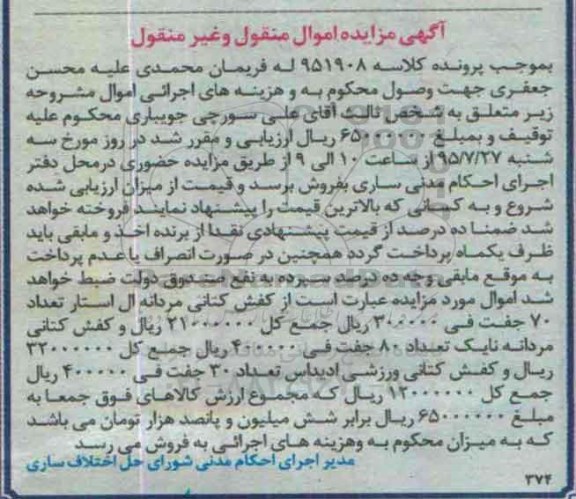 آگهی مزایده اموال منقول وغیر منقول
بموجب پرونده کلاسه ۹۵۱۹۰۸ له فریمان محمدی علیه محسن
جعفری جهت وصول محکوم به و هزینه های اجرائی اموال مشروحه
زیر متعلق به شخص ثالث آقای علی سورچی جویباری محکوم علیه
توقیف و بمبلغ ۶۵۰۰۰۰۰۰ ریال ارزیابی و مقرر شد در روز مورخ سه
شنبه ۹۵/۷/۲۷ از ساعت ۱۰ الی ۹ از طریق مزایده حضوری درمحل دفتر
اجرای احکام مدنی ساری بفروش برسد و قیمت از میزان ارزیابی شده
شروع و به کسانی که بالاترین قیمت را پیشنهاد نمایند فروخته خواهد
شد ضمنا ده درصد از قیمت پیشنهادی نقدا از برنده اخذ و مابقی باید
ظرف یکماه پرداخت گردد همچنین در صورت انصراف یا عدم پرداخت
به موقع مابقی وجه ده درصد سپرده به نفع صندوق دولت ضبط خواهد
شد اموال مورد مزایده عبارت است از کفش کتانی مردانه ال استار تعداد
۷۰ جفت فی ۳۰۰۰۰۰ ریال جمع کل ۲۱۰۰۰۰۰۰ ریال و کفش کتانی
مردانه نایک تعداد ۸۰ جفت فی ۴۰۰۰۰۰ ریال جمع کل ۳۲۰۰۰۰۰۰
ریال و کفش کتانی ورزشی ادیداس تعداد ۳۰ جفت فی ۴۰۰۰۰۰ ریال
جمع کل ۱۲۰۰۰۰۰۰ ریال که مجموع ارزش کالاهای فوق جمعا به
مبلغ ۶۵۰۰۰۰۰۰ ریال برابر شش میلیون و پانصد هزار تومان می باشد
که به میزان محکوم به وهزینه های اجرائی به فروش می رسد
مدیر اجرای احکام مدنی شورای حل اختلاف ساری
۳۷۴